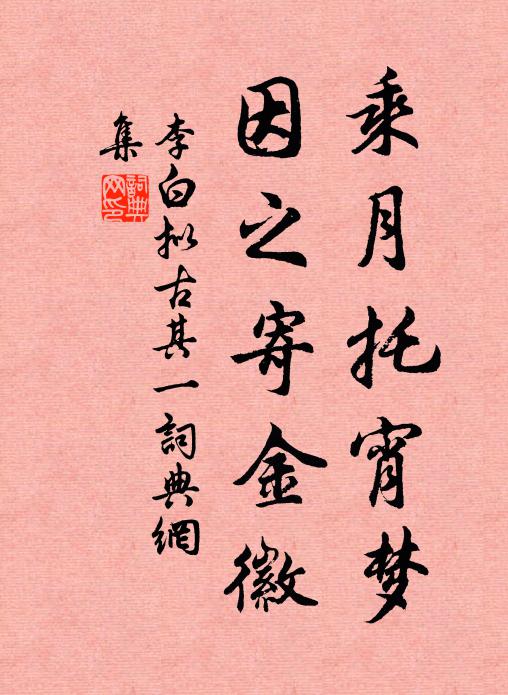 乘月托宵梦
因之寄金徽
李白拟古其一詞典網
集
詞典网印